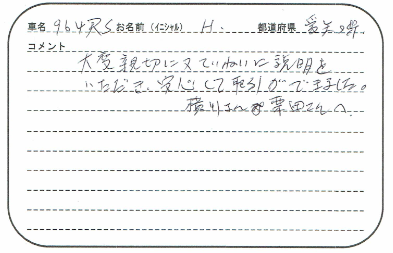 車名 964RS お名前(イニシャル) H. 都道府県 愛知県
コメント
大変親切に又ていねいに説明を
いただき、安心して取引ができました。
横川さん 栗田さんへ